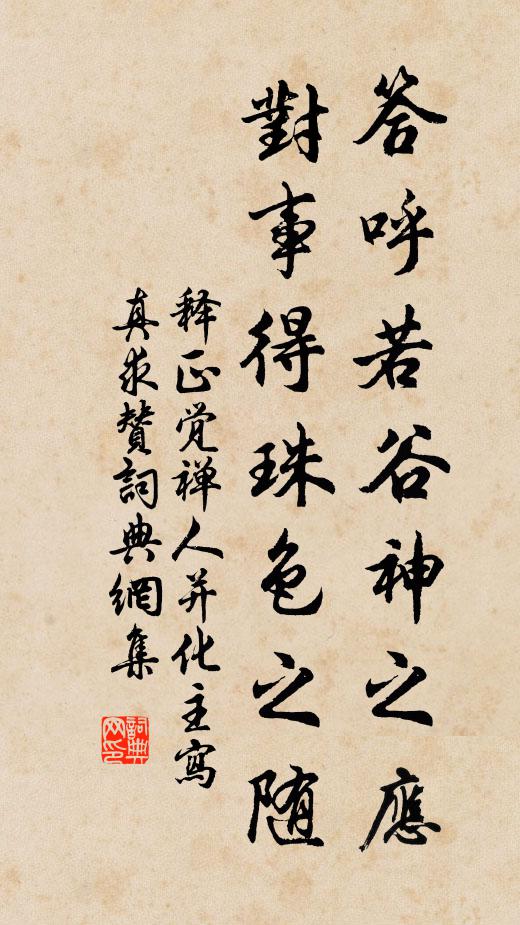 答呼若谷神之應
對事得珠色之随
释正觉禅人并化主寫
真求賛詞典網集
詞典網印